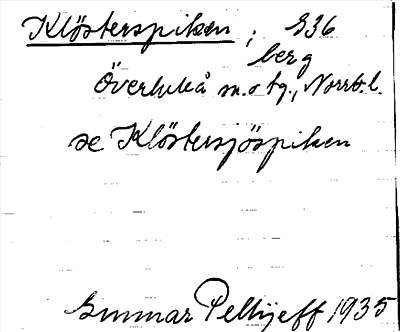 Klösterspiken; 936
berg
Överluleå sn. o tg., Norrb. l.
se Klöstersjöspiken
Gunnar Pellijeff 1935